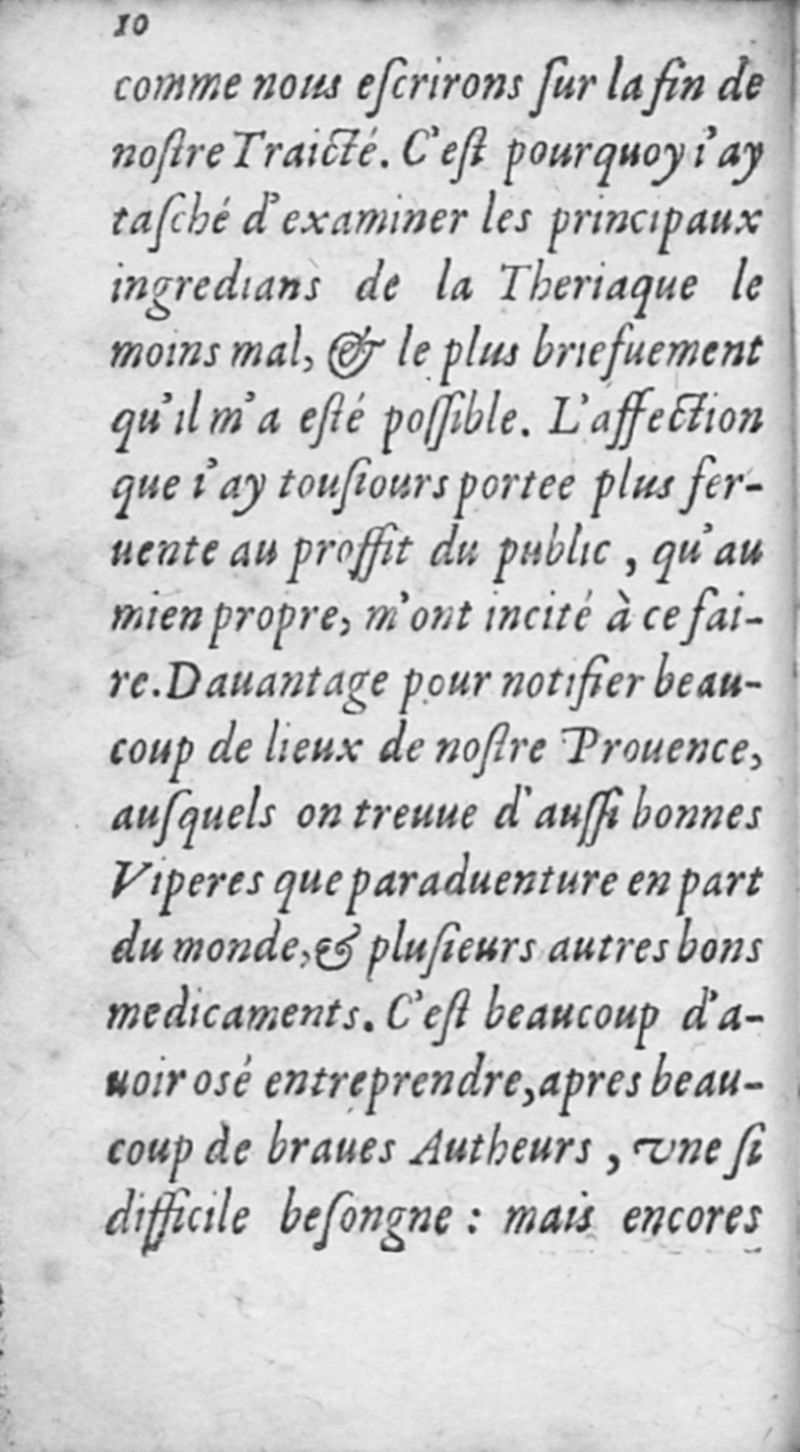 10
comme nous eſcrirons ſur la fin de
noſtre Traicté. C'eſt pourquoy i'ay
taſché d'examiner les principaux
ingredians de la Theriaque le
moins mal, & le plus briefuement
qu'il m'a eſté poſſible. L'affection
que i'ay touſiours portee plus fer-
uente au proffit du public , qu'au
mien propre, m'ont incité à ce fai-
re. Dauantage pour notifier beau-
coup de lieux de noſtre Prouence,
auſquels on treuue d'auſſi bonnes
Viperes que paraduenture en part
du monde, & pluſieurs autres bons
medicaments. C'eſt beaucoup d'a-
uoir osé entreprendre, apres beau-
coup de braues Autheurs , vne ſi
difficile beſongne : mais encores